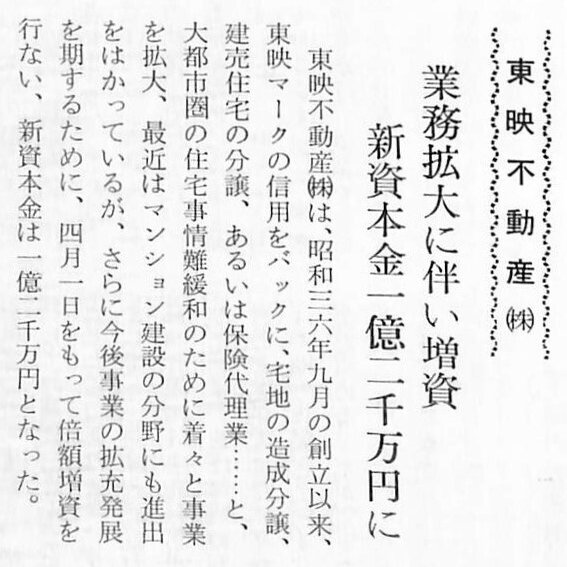 東映不動産㈱
業務拡大に伴い増資
新資本金一億二千万円に
東映不動産㈱は、昭和三六年九月の創立以来、
東映マークの信用をバックに、宅地の造成分譲、
建売住宅の分譲、あるいは保険代理業……と、
大都市圏の住宅事情難緩和のために着々と事業
を拡大、最近はマンション建設の分野にも進出
をはかっているが、さらに今後事業の拡充発展
を期するために、四月一日をもって倍額増資を
行ない、新資本金は一億二千万円となった。